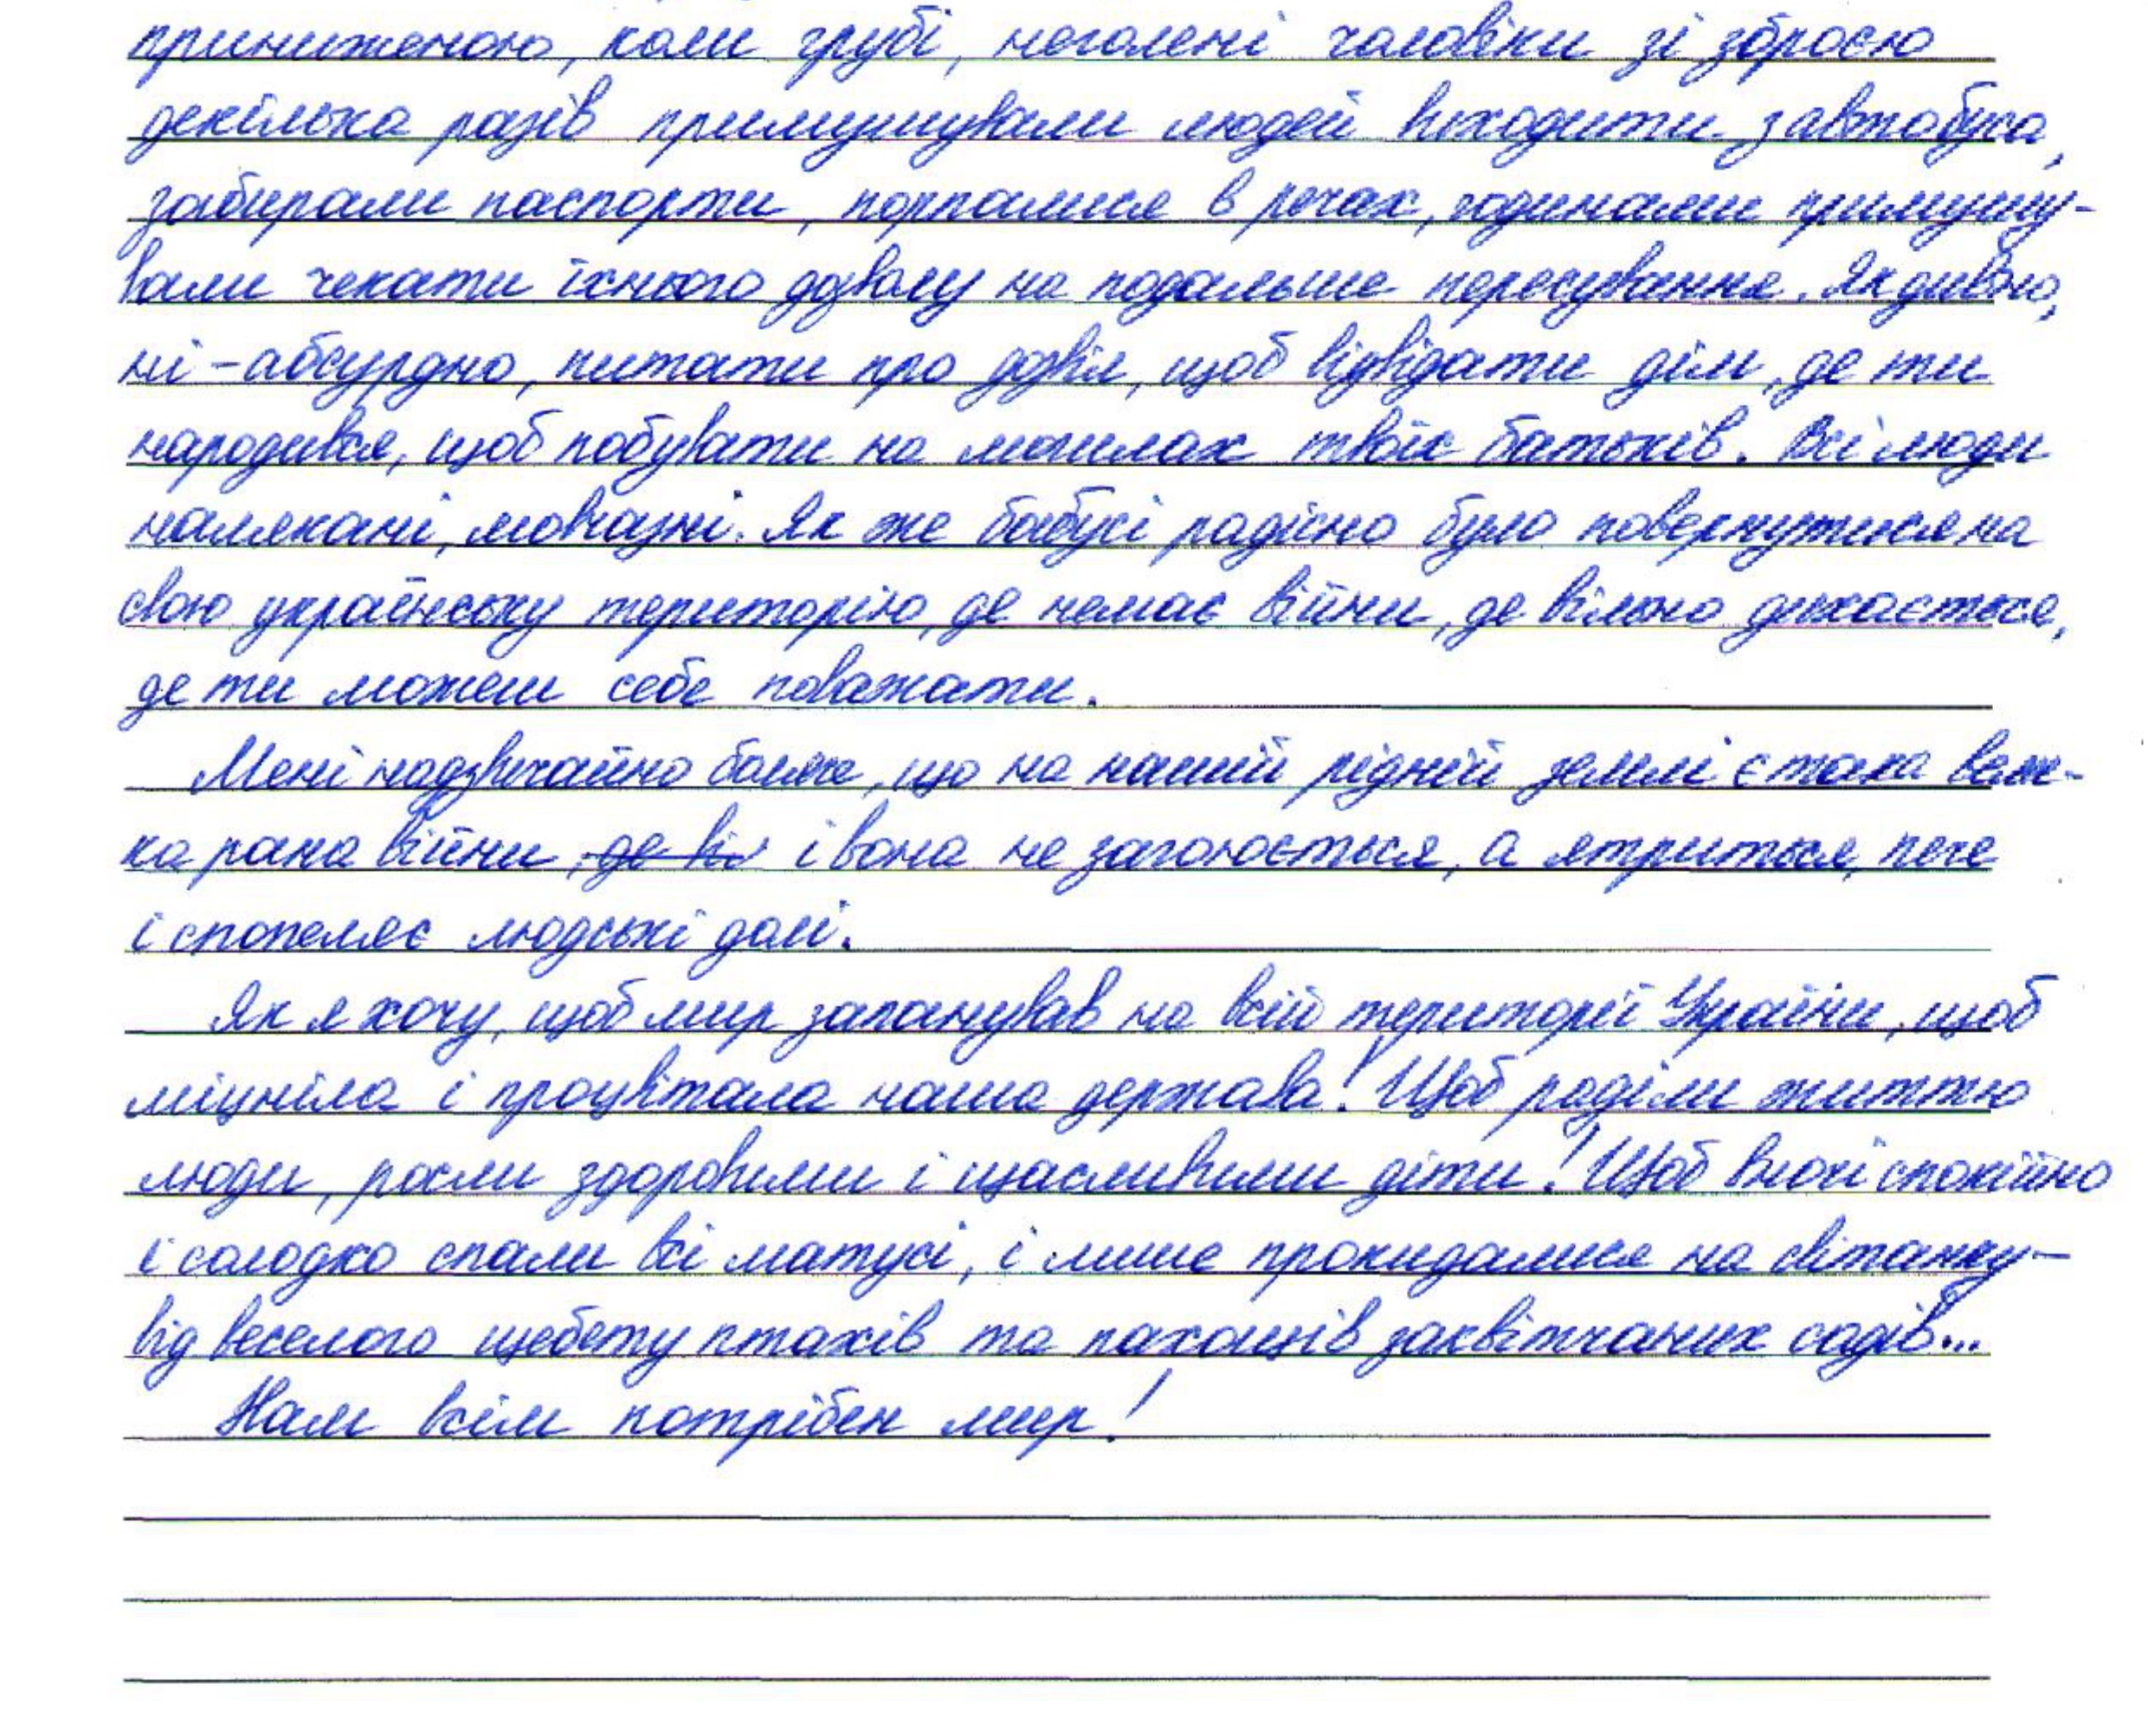 приниженою, коли грубі, неголені чоловіки зі зброєю
декілька разів примушували людей виходити з автобуса,
забирали паспорти, порпалися в речах, годинами примушу-
вали чекати їхнього дозволу на подальше пересування. Як дивно,
ні - абсурдно, питати про дозвіл, щоб відвідати дім, де ти
народився, щоб побувати на могилах твоїх батьків. Всі люди
налякані, мовчазні. Як же бабусі радісно було повернутися на
свою українську територію, де немає війни, де вільно дихається,
де ти можеш себе поважати.
Мені надзвичайно боляче, що на нашій рідній землі є така важ-
ка рана війни, де він і вона не загоюється, а ятриться, пече
і спопеляє людські долі.
Як я хочу, щоб мир запанував на всій території України, щоб
міцніла і процвітала наша держава! Щоб раділи життю
люди, росли здоровими і щасливими діти! Щоб вночі спокійно
і солодко спали всі матусі, і лише прокидалися на світанку -
від веселого щебету птахів та пахощів заквітчаних садів...
Нам всім потрібен мир!